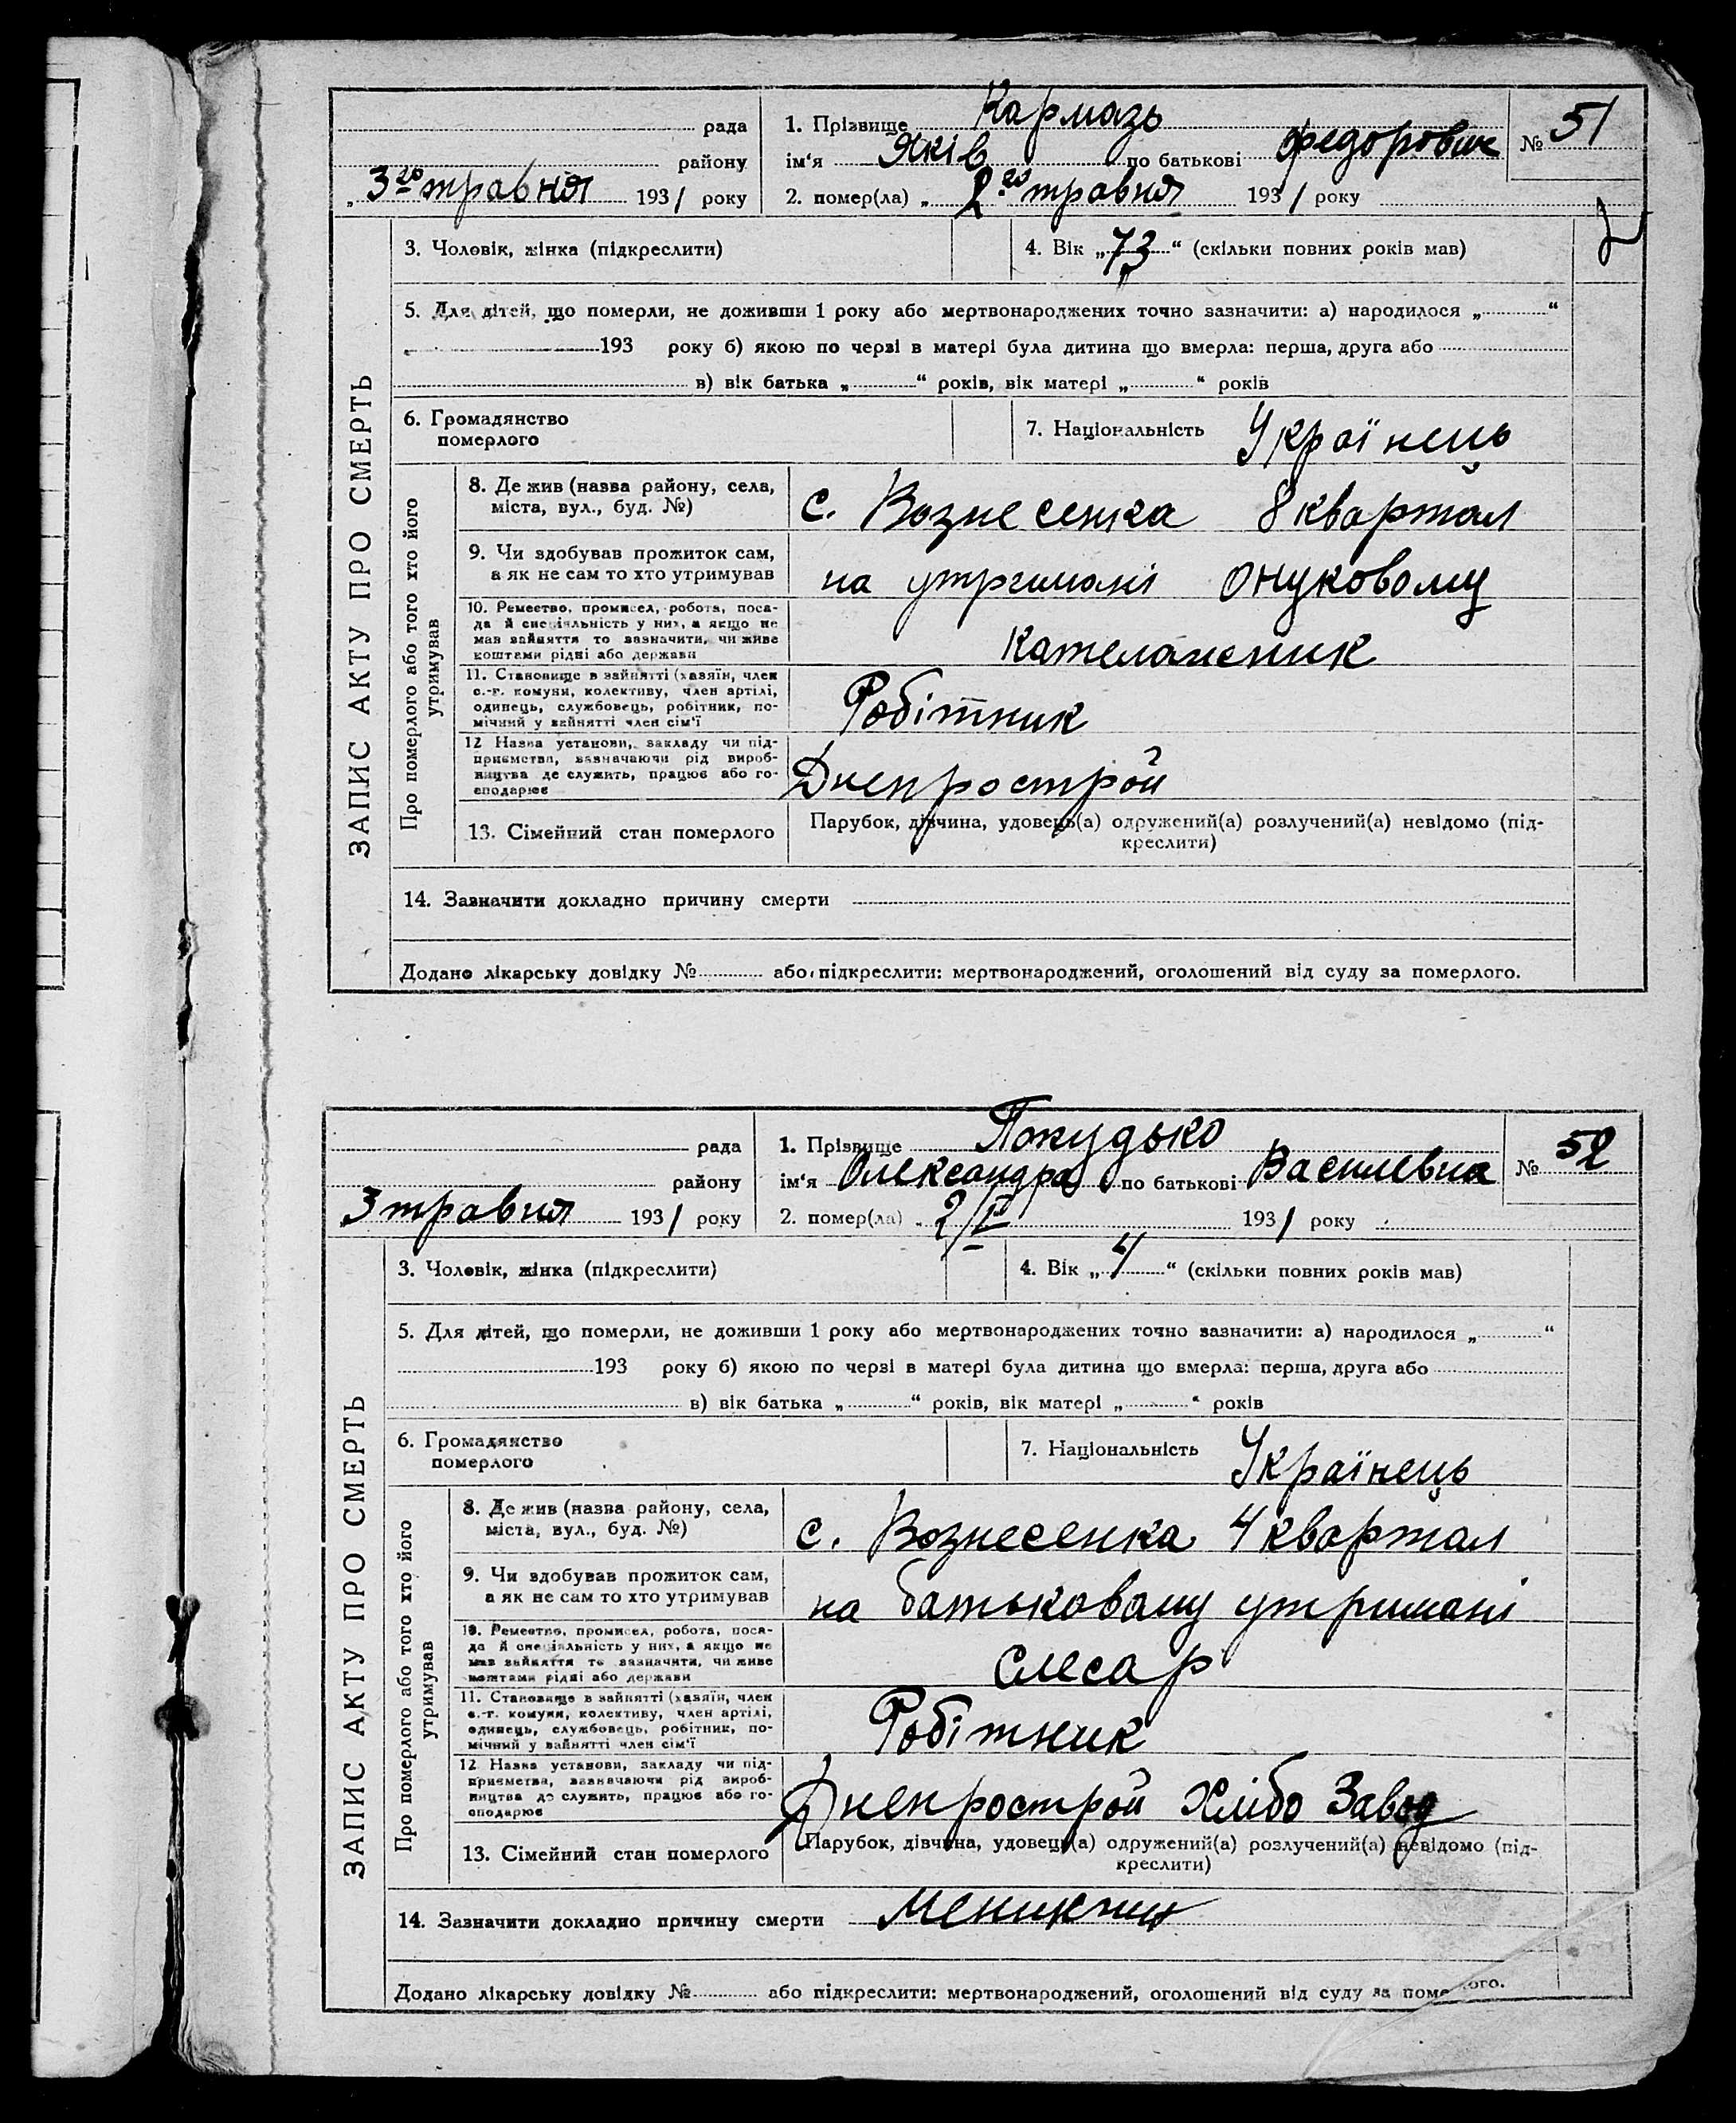 рада
району
„ 3го травня 1931 року
1. Прізвище Кармазь
ім'я Яків по батькові Федорович
2. помер(ла) „ 2го травня 1931 року
№ 51
ЗАПИС АКТУ ПРО СМЕРТЬ
3. Чоловік, жінка (підкреслити)
4. Вік „73“ (скільки повних років мав)
5. Для дітей, що померли, не доживши 1 року або мертвонароджених точно зазначити: а) народилося „ “
193 року б) якою по черзі в матері була дитина що вмерла: перша, друга або
в) вік батька „ “ років, вік матері „ “ років
6. Громадянство
померлого
7. Національність Українець
Про померлого або того хто його
утримував
8. Де жив (назва району, села,
міста, вул., буд. №)
с. Вознесенка 8 квартал
9. Чи здобував прожиток сам,
а як не сам то хто утримував
на утримані онуковому
10. Ремество, промисел, робота, поса-
да й спеціяльність у них, а якщо не
мав зайняття то зазначити, чи живе
коштами рідні або держави
11. Становище в зайнятті (хазяїн, член
с.-г. комуни, колективу, член артілі,
одинець, службовець, робітник, по-
мічний у зайнятті член сім'ї
Робітник
12 Назва установи, закладу чи під-
приємства, зазначаючи рід вироб-
ництва де служить, працює або го-
сподарює
Днепрострой
13. Сімейний стан померлого
Парубок, дівчина, удовець(а) одружений(а) розлучений(а) невідомо (під-
креслити)
14. Зазначити докладно причину смерти
Додано лікарську довідку № або підкреслити: мертвонароджений, оголошений від суду за померлого.
рада
району
3 травня 1931 року
1. Прізвище
ім'я Олександра по батькові Василевна
2. помер(ла) „ 2/V 1931 року
№ 52
ЗАПИС АКТУ ПРО СМЕРТЬ
3. Чоловік, жінка (підкреслити)
4. Вік „4“ (скільки повних років мав)
5. Для дітей, що померли, не доживши 1 року або мертвонароджених точно зазначити: а) народилося „ “
193 року б) якою по черзі в матері була дитина що вмерла: перша, друга або
в) вік батька „ “ років, вік матері „ “ років
6. Громадянство
померлого
7. Національність Українець
Про померлого або того хто його
утримував
8. Де жив (назва району, села,
міста, вул., буд. №)
с. Вознесенка 4 квартал
9. Чи здобував прожиток сам,
а як не сам то хто утримував
на батьковому утримані
10. Ремество, промисел, робота, поса-
да й спеціяльність у них, а якщо не
мав зайняття то зазначити, чи живе
коштами рідні або держави
Слесар
11. Становище в зайнятті (хазяїн, член
с.-г. комуни, колективу, член артілі,
одинець, службовець, робітник, по-
мічний у зайнятті член сім'ї
Робітник
12 Назва установи, закладу чи під-
приємства, зазначаючи рід вироб-
ництва де служить, працює або го-
сподарює
Днепрострой Хлібо Завод
13. Сімейний стан померлого
Парубок, дівчина, удовець(а) одружений(а) розлучений(а) невідомо (під-
креслити)
14. Зазначити докладно причину смерти
Додано лікарську довідку № або підкреслити: мертвонароджений, оголошений від суду за померлого.